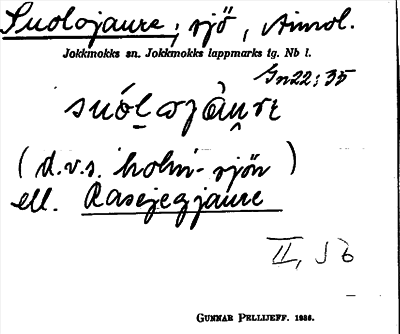 Suolojaure, sjö,
Jokkmokks sn. Jokkmokks lappmarks tg. Nb l.
Gn22:35
(d.v.s. 'holm-sjön')
ell. Rasejegjaure
II,
GUNNAR PELLIJEFF. 1956.